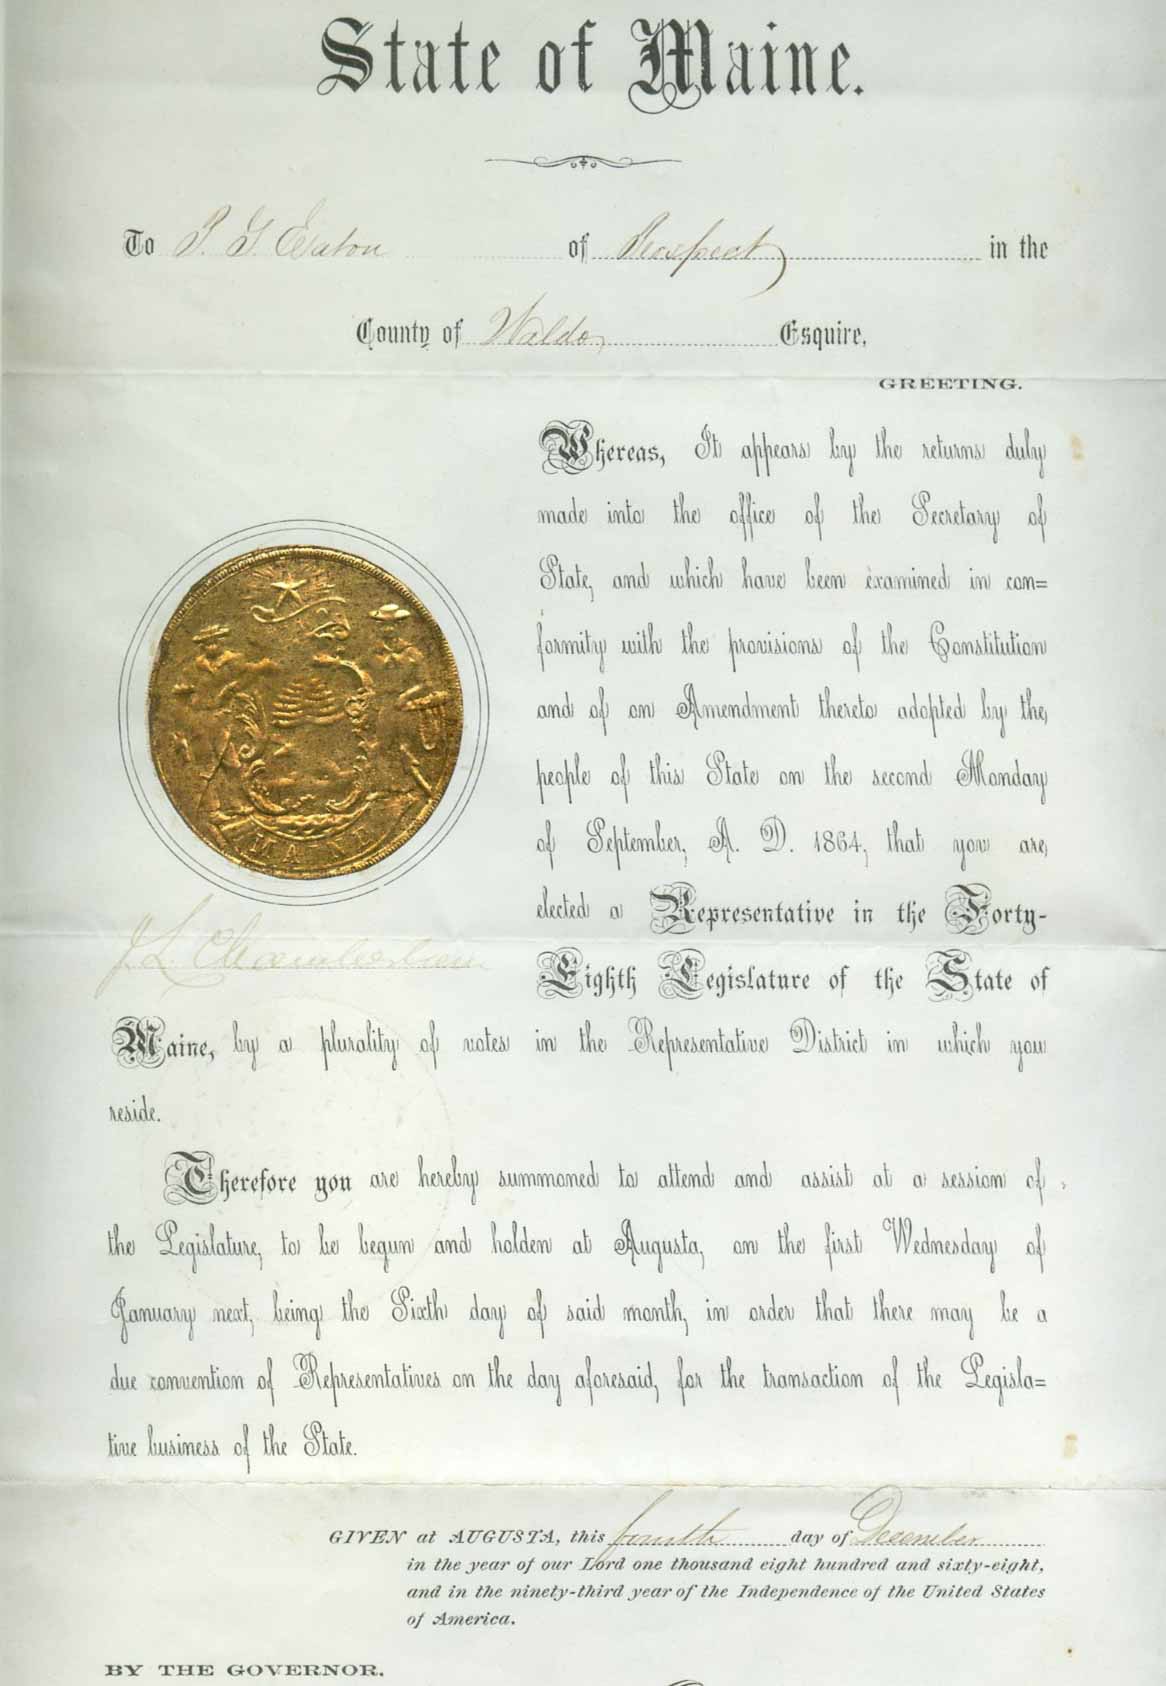 State of Maine.
To P. G. Eaton of Prospect in the
County of Waldo, Esquire,
GREETING.
Whereas, It appears by the returns duly
made into the office of the Secretary of
State, and which have been examined in con=
formity with the provisions of the Constitution
and of an Amendment thereto adopted by the
people of this State on the second Monday
of September, A. D. 1864, that you are
elected a Representative in the Forty-
Eighth Legislature of the State of
Maine, by a plurality of votes in the Representative District in which you
reside.
MAINE
J L Chamberlain
Therefore you are hereby summoned to attend and assist at a session of
the Legislature, to be begun and holden at Augusta, on the first Wednesday of
January next, being the Sixth day of said month, in order that there may be a
due convention of Representatives on the day aforesaid, for the transaction of the Legisla=
tive business of the State.
GIVEN at AUGUSTA, this fourth day of December
in the year of our Lord one thousand eight hundred and sixty-eight,
and in the ninety-third year of the Independence of the United States
of America.
BY THE GOVERNOR.